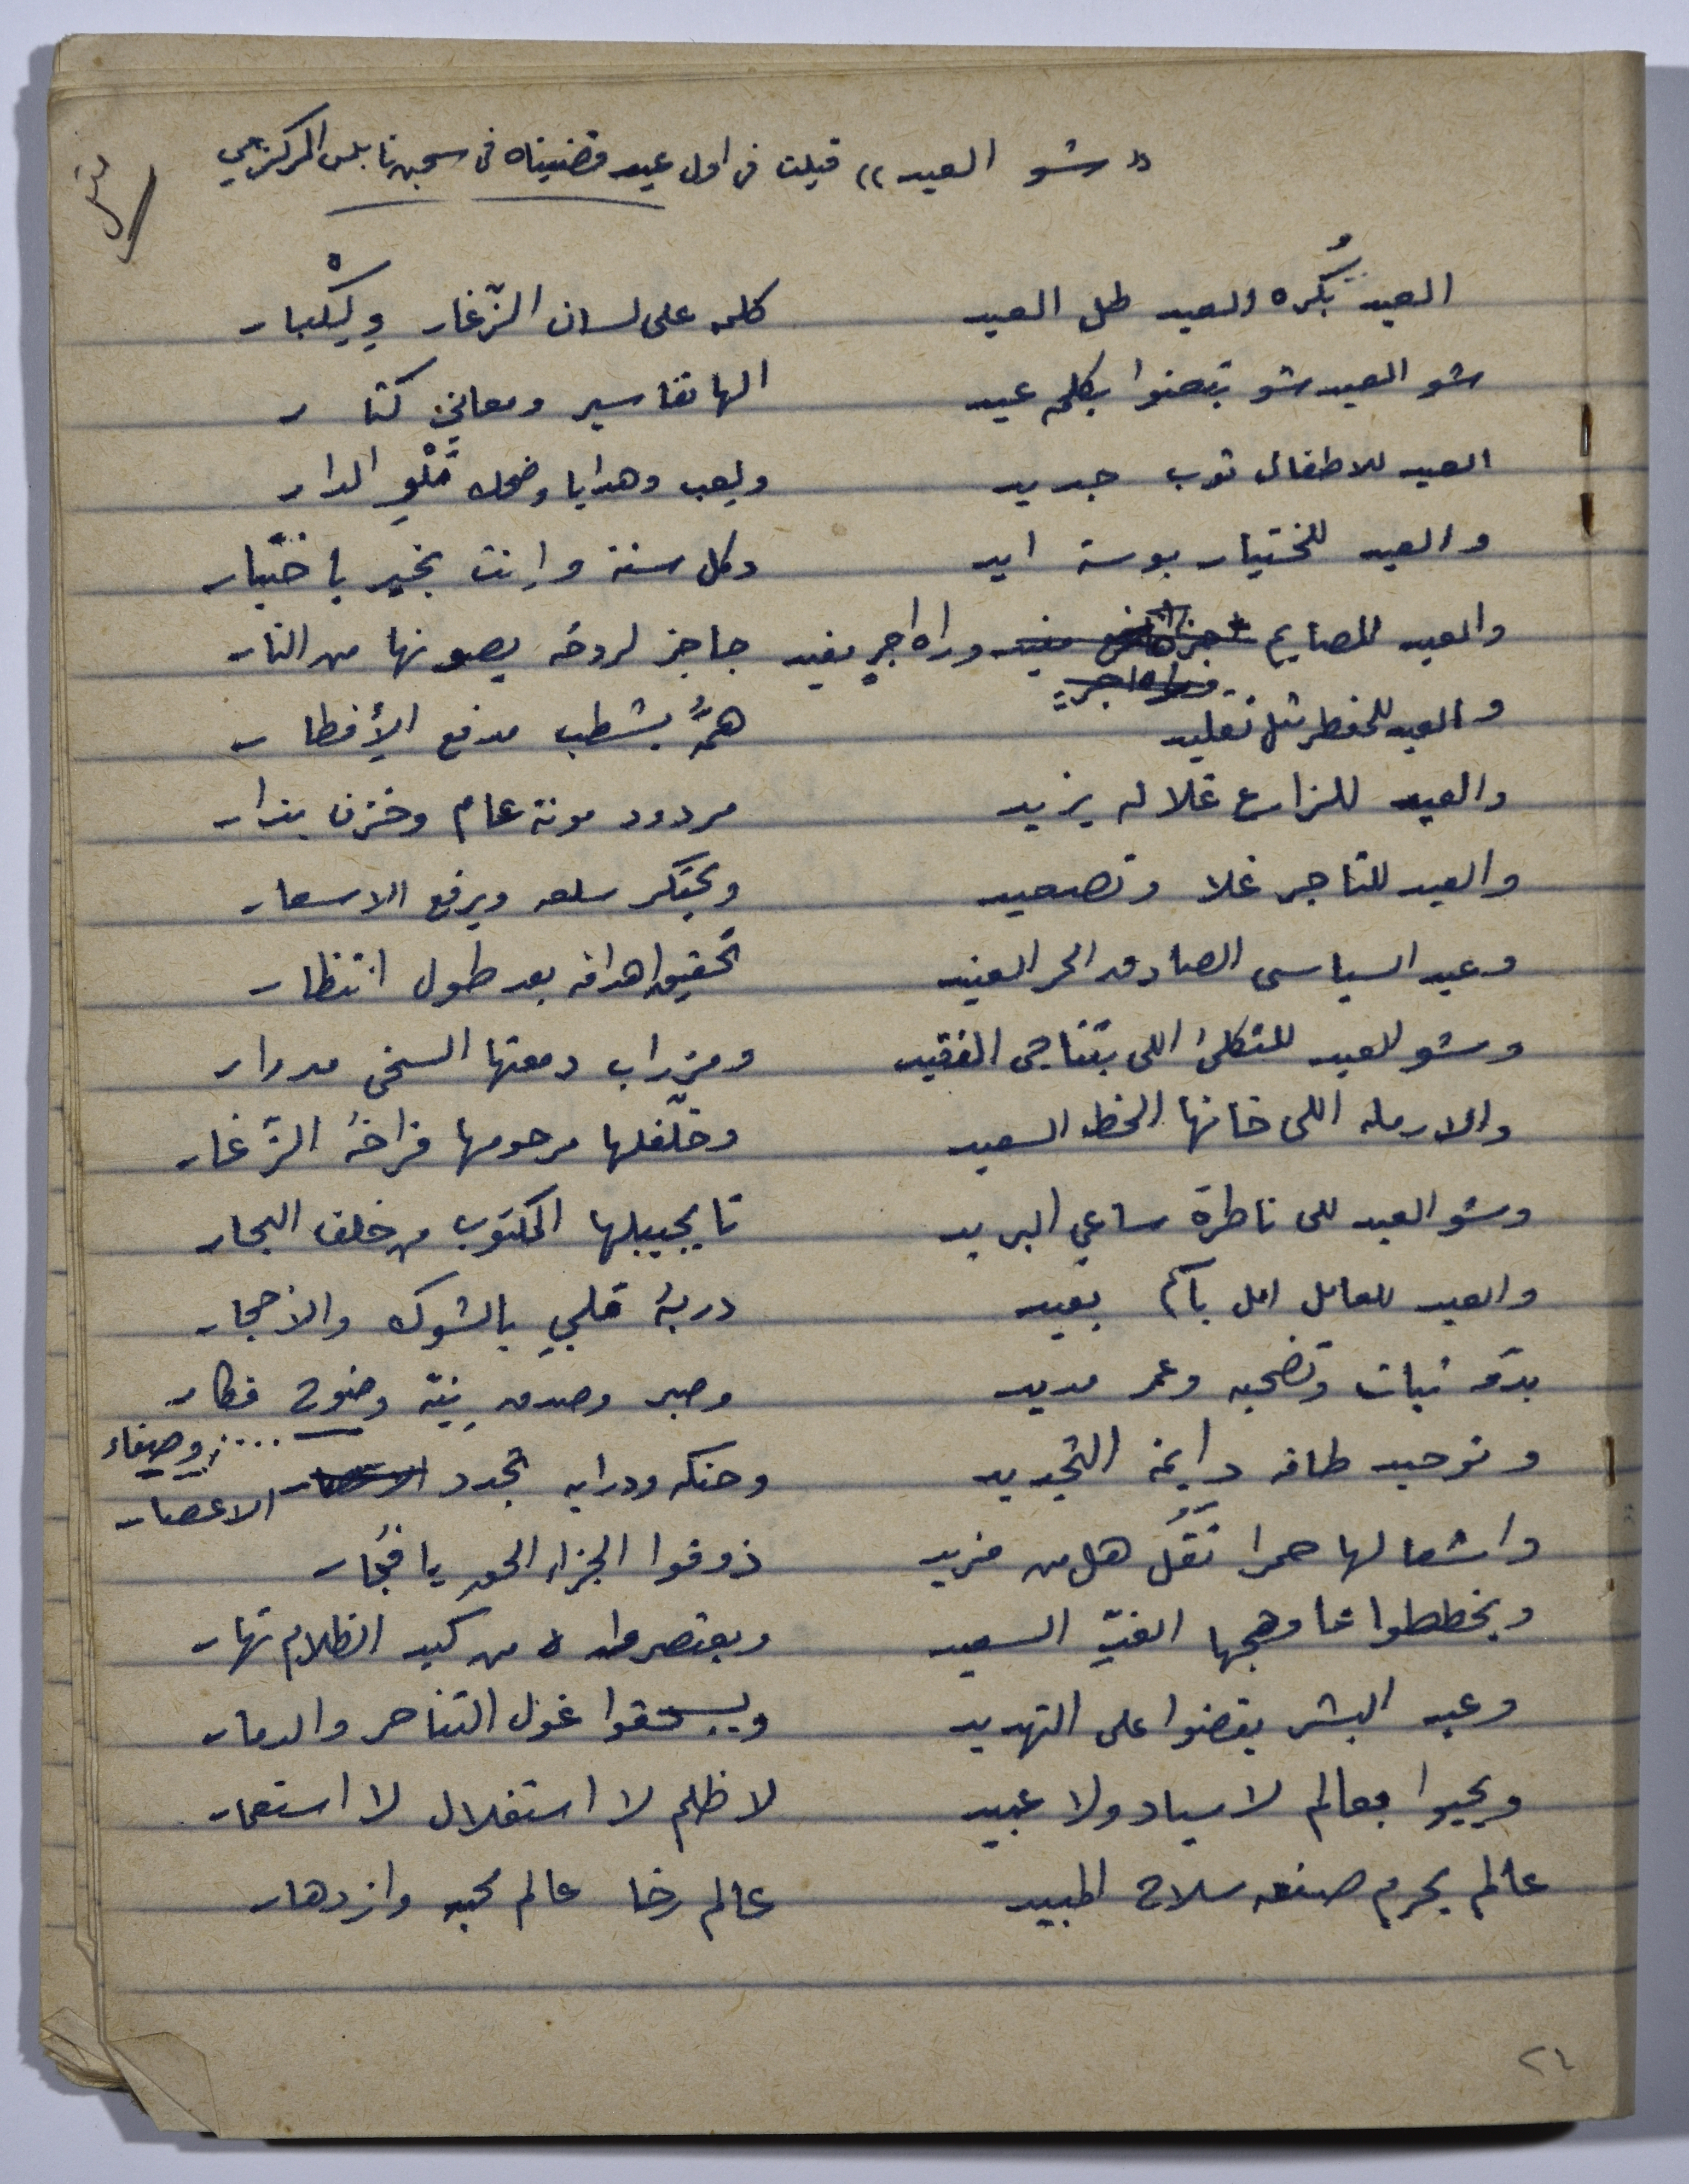 « شو العيد » قيلت في اول عيد قضيناه في سجن نابلس المركزي
العيد بُكره العيد طل العيد كلمه على لسان الزّغار وِلِكْبار
شو العيد شو بتعنوا بكلمة عيد الها تفاسير ومعاني كثار
العيد للاطفال توب جديد ولعب وهدايا وضحك مَلْو الدار
والعيد للختيار بوسة ايد وكل سنة وإنت بخير يا ختيار
والعيد للصايم وراه اجر مفيد حاجز لروحه يصونها من النار
والعيد للمفطر مثل تقليد همُّه يشطب مدفع الإفطار
والعيد للزارع غلاله يزيد مردود مونة عام وخزن بذار
والعيد للتاجر غلا وتصعيد ويحتكر سلعه ويرفع الاسعار
وعيد السياسي الصادق الحر العنيد تحقيق اهدافه بعد طول انتظار
وشو العيد للثكلى اللي بتناجي الفقيد ومزراب دمعتها السخي مدرار
والارمله اللي خانها الحظ السعيد وخلّفلها مرحومها فراخه الزّغار
وشو العيد للي ناطرة ساعي البريد تا يجيبلها المكتوب من خلف البحار
والعيد للعامل امل بآم بعيد دربه قلبي بالشوك والأحجار
بدّه ثبات وتضحيه وعمر مديد وصبر وصدق نِيّة وضوح فكار
وصفاء
وتوحيد طاقه دايمة التجديد وحنكه ودرايه تجدد الاعصار
واشعالها حمرا تقُل هل من مزيد ذوقوا الجزاء الحق يا فجّار
ويخططوا عا وهجها الغدِّ السعيد ويعتصروا من كبد الظلام نهار
وعيد البشر يقضوا على التهديد ويسحقوا غول التناحر والدمار
ويحيوا بعالم لا سياد ولا عبيد لا ظلم لا استغلال لا استعمار
عالم يحرم صنعه سلاح المبيد عالم رخا عالم محبه وازدهار
٢٤